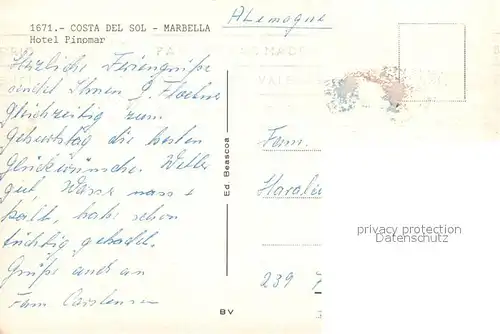 1671.- COSTA DEL SOL - MARBELLA
Hotel Pinomar
Alemagne
Herzliche Feriengrüße
sendet Ihnen
Gleichzeitig zum
Geburtstag die besten
Glückwünsche. Wetter
gut, Wasser nass +
kalt, habe schon
tüchtig gebadet.
Grüße auch an
Fam. Carstensen
Ed. Beascoa
BV
Fam.
239
privacy protection
Datenschutz